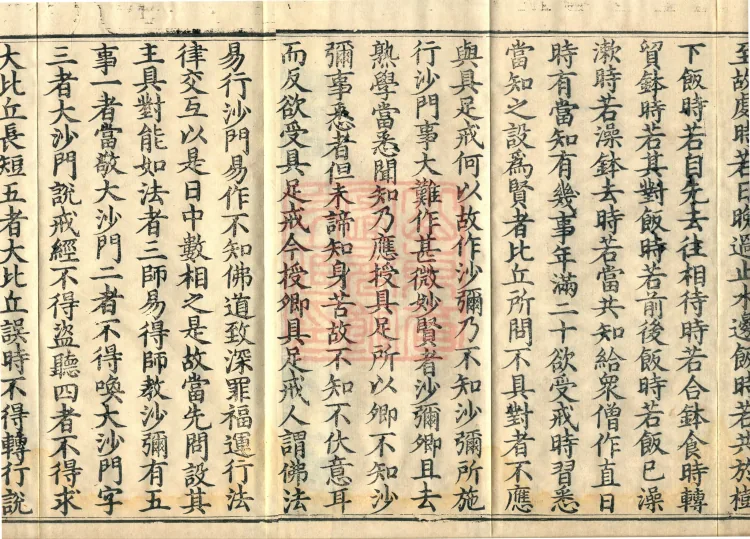 至故處時若日晚過止水邊飯時若共於檀
下飯時若自先去往相待時若合鉢食時轉
貿鉢時若其對飯時若前後飯時若飯已澡
漱時若澡鉢去時若當共知給衆僧作直日
時有當知有幾事年滿二十欲受戒時習悉
當知之設爲賢者比丘所問不具對者不應
與具足戒何以故作沙彌乃不知沙彌所施
行沙門事大難作甚微妙賢者沙彌卿且去
熟學當悉聞知乃應授具足所以卿不知沙
彌事悉者但未諦知身苦故不知不伏意耳
而反欲受具足戒今授卿具足戒人謂佛法
易行沙門易作不知佛道致深罪福運行法
律交互以是日中數相之是故當先問設其
主具對能如法者三師易得師教沙彌有五
事一者當敬大沙門二者不得喚大沙門字
三者大沙門說戒經不得盜聽四者不得求
大比丘長短五者大比丘誤時不得轉行說